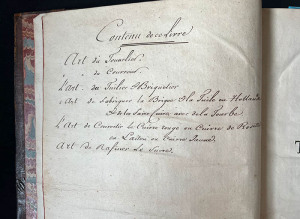 Contenu de ce Livre
Art du Tonnelier.
du Couvreur
L'art du Tuilier & Briquetier
Art de fabriquer la Brique & la Tuile en Hollande
& de la faire cuire avec de la Tourbe
L'Art de Convertir le Cuivre rouge ou Cuivre de Rosette
en Laiton ou Cuivre Jaune
Art de Rafiner le Sucre
T